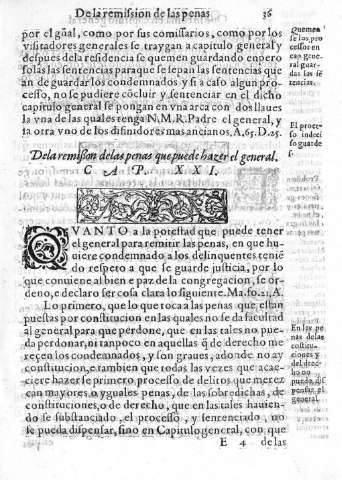 De la remission de las peñas 36
por el gñal, como por sus comissarios, como por los
visitadores generales se traygan a capitulo general y
despues dela residencia se quemen guardando enpero
solas las sentencias paraque se sepan las sentencias que
an de guardar los condemnados y si a caso algun pro-
cesso, no se pudiere cõcluir y sentenciar en el dicho
capitulo general se pongan en vna arca con dos llaues
la vna de las quales tenga N.M.R.Padre el general, y
la otra vno de los difinidores mas ancianos, A, 65. D. 25.
Quemen
se los pro
cessor en
cap gene-
ral guar-
das las sē
tencias.
El proces-
so indeci
so guarde
se.
De la remisson de las penas que puede hazer el general.
C A P. XXI.
QVANTO a la potestad que puede tener
el general para remitir las penas, en que hu-
uiere condemnado a los delinquentes tenië
do respeto a que se guarde justicia, por lo
que conuiene al bien e paz de la congregacion, se or-
deno, e declaro ser cosa clara lo siguiente. Ma. fo. 21, A.
Lo primero, que lo que toca a las penas que estan
puestas por constitucion en las quales no se da facultad
al general para que perdone, que en las tales no pue-
da perdonar, ni tanpoco en aquellas q̃ de derecho me
reçen los condemnados, y son graues, adonde no ay
constitucion, e tambien que todas las vezes que acae-
ciere hazerse primero processo de delitos que merez
can mayores, o yguales penas, de las sobredichas, de
constituciones, o de derecho, que en las tales hauien-
do se substanciado, el processo, y sentenciado, no
se pueda dispensar, sino en Capitulo general, con que
En las pe
nas delas
costitu-
ciones y
del drec-
ho no
puede, dis
pensar, el
general.
E 4 de las